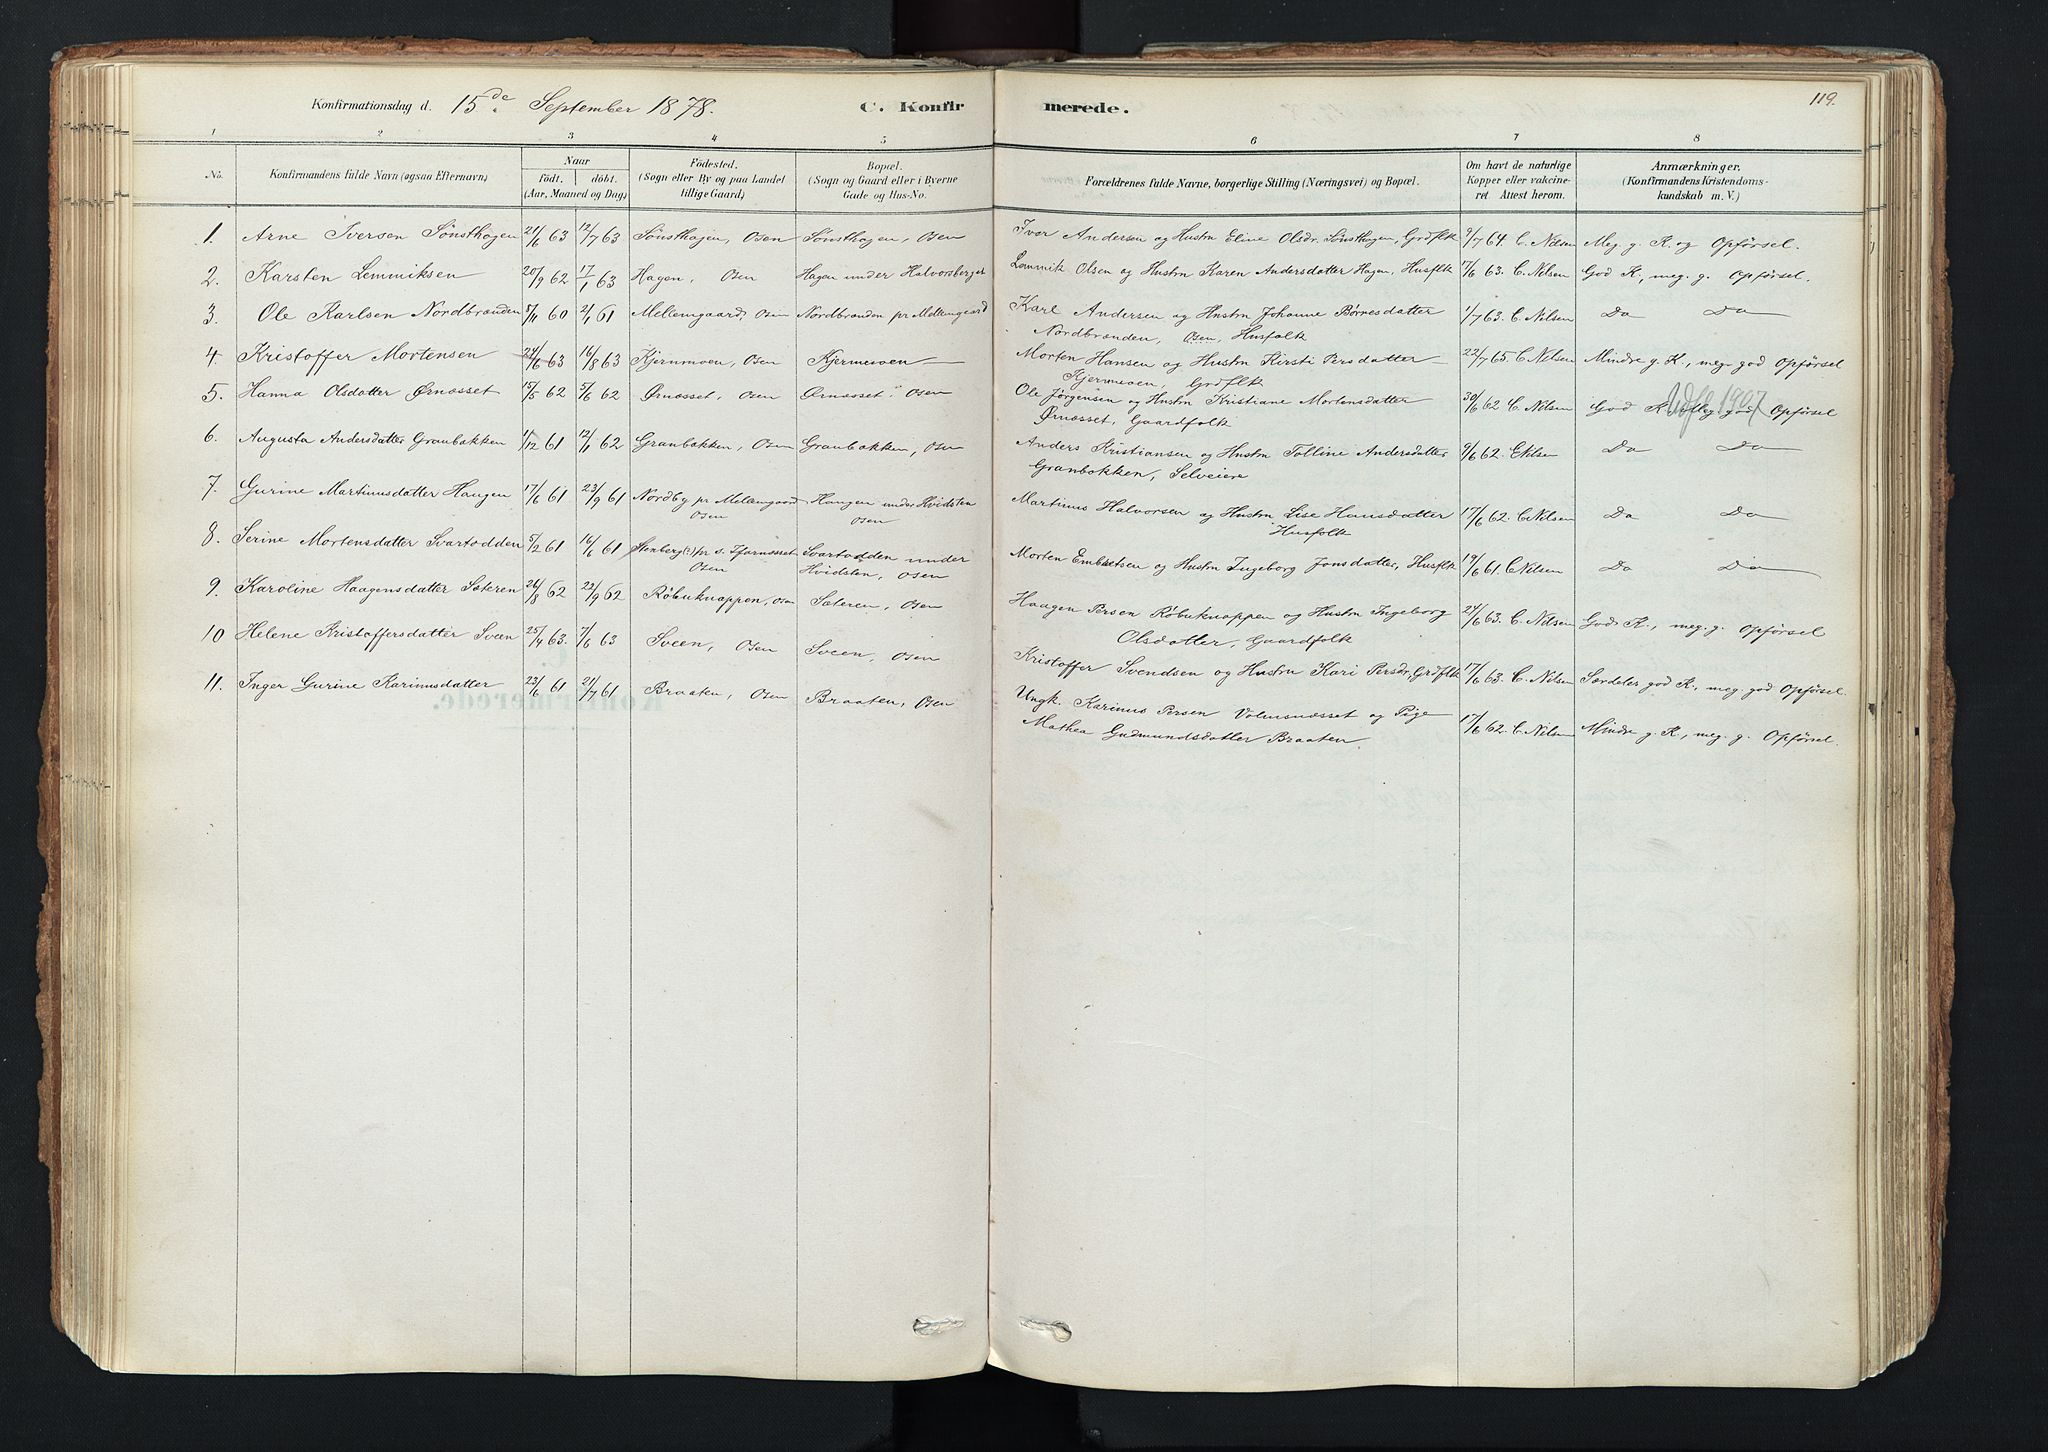 Konfirmationsdag d. 15de September 1878. C. Konfirmerede. 119.
1 2 3 4 5 6 7 8
No. Konfirmandens fulde Navn (ogsaa Efternavn) Naar födt. döbt. (Aar, Maaned og Dag) Födested. (Sogn eller By og paa Landet tillige Gaard) Bopæl. (Sogn og Gaard eller i Byerne Gade og Hus-No. Forældrenes fulde Navne, borgerlige Stilling (Næringsvei) og Bopæl. Om havt de naturlige Kopper eller vakcineret Attest herom. Anmærkninger. (Konfirmandens Kristendomskundskab m. V.)
1. Arne Iversen Sønsthagen 21/6 63 12/7 63 Sønsthagen, Osen Sønsthagen, Osen Iver Andersen og Hustru Eline Olsdr. Sønsthagen, Grdflk 9/7 64. C. Nilsen Meg. g. K. og Opførsel.
2. Karsten Lemmiksen 20/9 62 17/1 63 Hagen, Osen Hagen under Halvorsberget Lemmik Olsen og Hustru Karen Andersdatter Hagen, Husflk 17/6 63. C. Nilsen God K., meg. g. Opførsel.
3. Ole Karlsen Nordbrænden 8/11 60 2/1 61 Mellemgaard, Osen Nordbrænden pr Mellemgaard Karl Andersen og Hustru Johanne Børresdatter
Nordbrænden, Osen, Husfolk 1/7 63. C. Nilsen Do Do
4 Kristoffer Mortensen 24/6 63 16/8 63 Kjernmoen, Osen Kjernmoen — Morten Hansen og Hustru Kirsti Persdatter
Kjernmoen, Grdflk 22/7 65. C. Nilsen Mindre g. K., meg. god Opførsel
5. Hanna Olsdatter Ørnæsset 15/5 62 5/6 62 Ørnæsset, Osen Ørnæsset, Osen Ole Jørgensen og Hustru Kristiane Mortensdatter
Ørnæsset, Gaardfolk 30/6 62 C. Nilsen God K., meg g. Opførsel
1907
6. Augusta Andersdatter Granbakken 1/12 61 12/1 62 Granbakken, Osen Granbakken, Osen Anders Kristiansen og Hustru Tolline Andersdatter
Granbakken, Selveiere 9/6 62. C Nilsen Do Do
7. Gurine Martinusdatter Haugen 17/6 61 23/9 61 Nordby pr Mellemgaard
Osen Haugen under Hvidsten
Osen Martinus Halvorsen og Hustru Lise Hansdatter
Husfolk 17/6 62. C. Nilsen Do Do
8. Serine Mortensdatter Svartodden 5/2 61 16/6 61 Stenberg(?) pr s. Ifarnæsset
Osen Svartodden under
Hvidsten, Osen Morten Embretsen og Hustru Ingeborg Jonsdatter, Husflk 19/6 61. C Nilsen Do Do
9. Karoline Haagensdatter Sæteren 26/8 62 23/9 62 Røbuknappen, Osen Sæteren, Osen Haagen Persen Røbuknappen og Hustru Ingeborg
Olsdatter, Gaardfolk 24/6 63. C. Nilsen God K., meg. g. Opførsel
10 Helene Kristoffersdatter Sveen 25/4 63. 7/6 63 Sveen, Osen Sveen, Osen Kristoffer Svendsen og Hustru Kari Persdr, Grdflk 17/6 63. C. Nilsen Særdeles god K., meg. god Opførsel.
11. Inger Gurine Karinusdatter 23/6 61 21/7 61 Braaten, Osen Braaten, Osen Ungk. Karinus Persen Volmsnæsset og Pige
Mathea Gudmundsdatter Braaten 17/6 62. C. Nilsen Mindre g. K., meg. g. Opførsel.